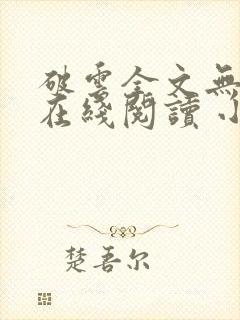 破雲全文無
在綫閱讀小
楚吾尔